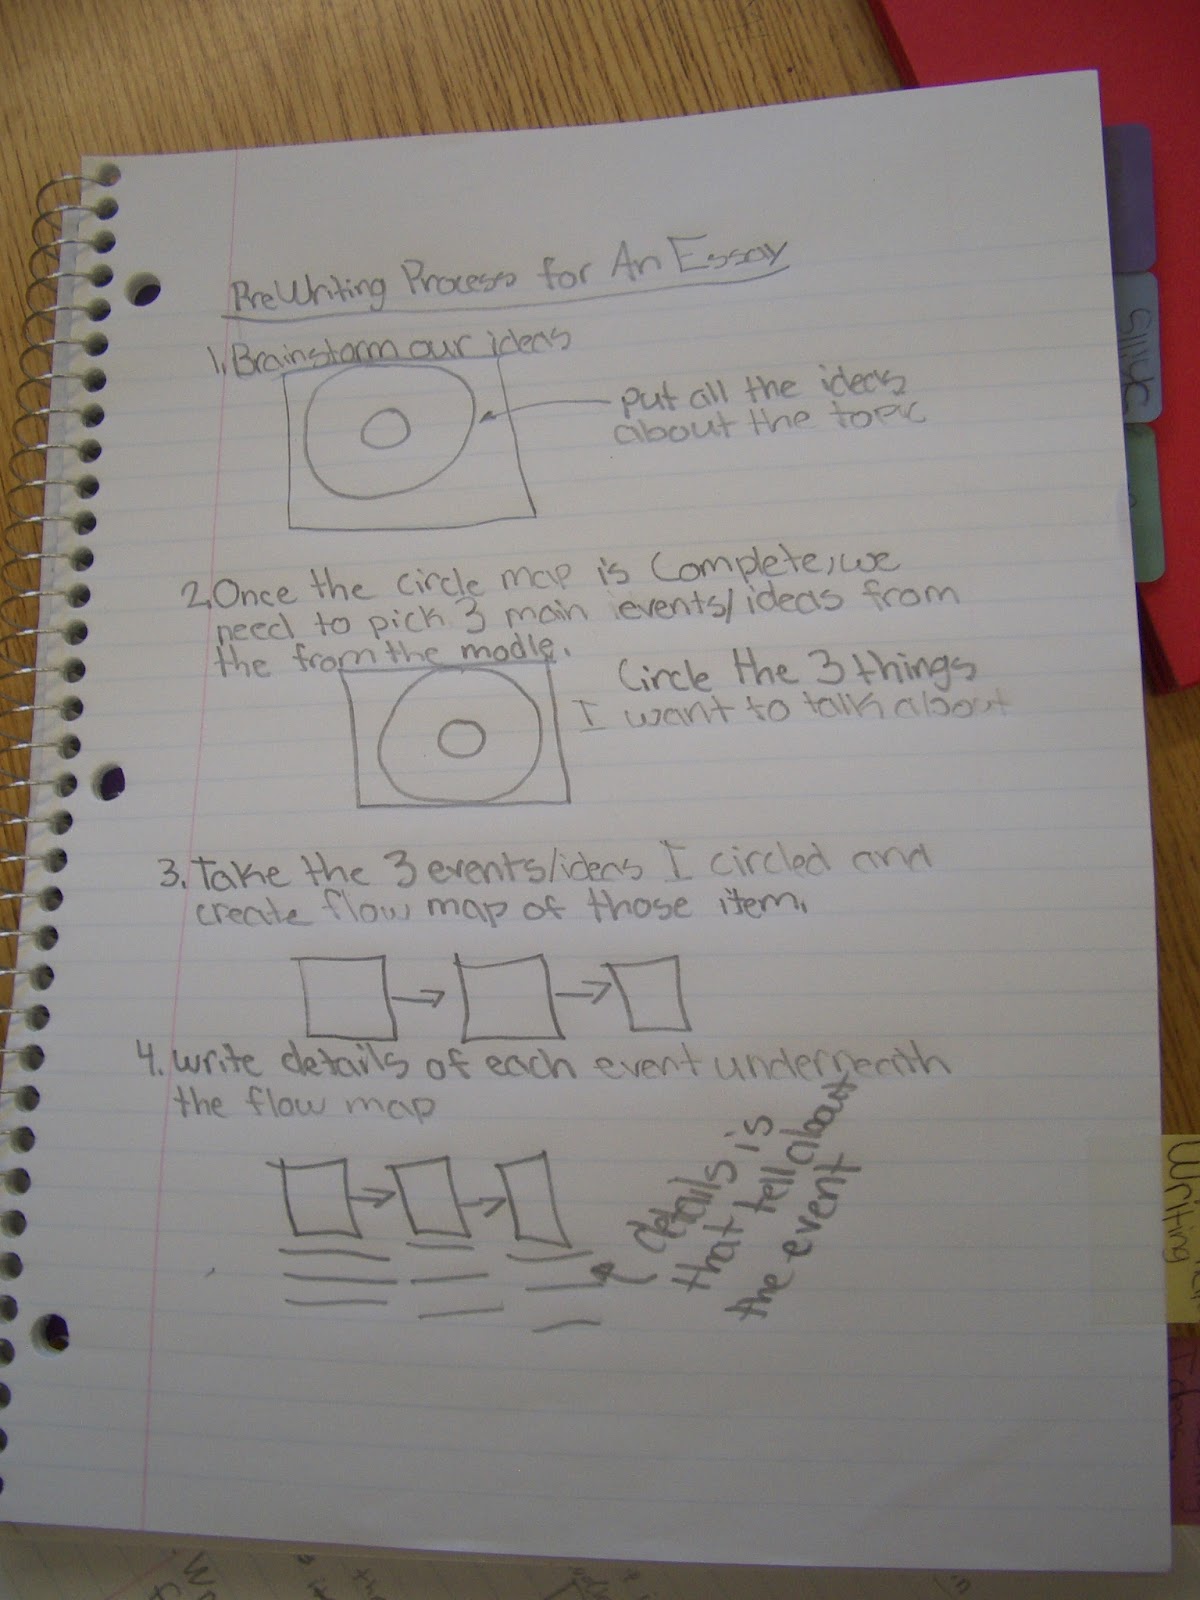 PreWriting Process for An Essay
1. Brainstorm our ideas
put all the ideas
about the topic
2. Once the circle map is Complete, we
need to pick 3 main events/ideas from
the from the modle.
Circle the 3 things
I want to talk about
3. Take the 3 events/ideas I circled and
create flow map of those item.
4. Write details of each event underneath
the flow map
details is
that tell about
the event
Skills
Writing